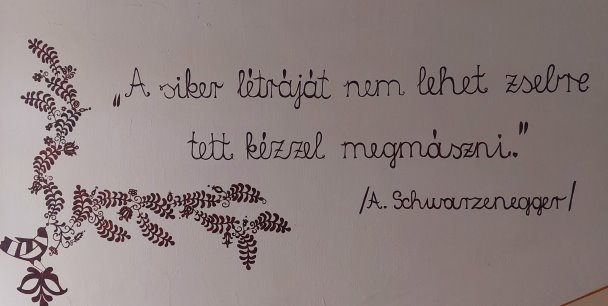 „A siker létráját nem lehet zsebre
tett kézzel megmászni."
/A. Schwarzenegger/